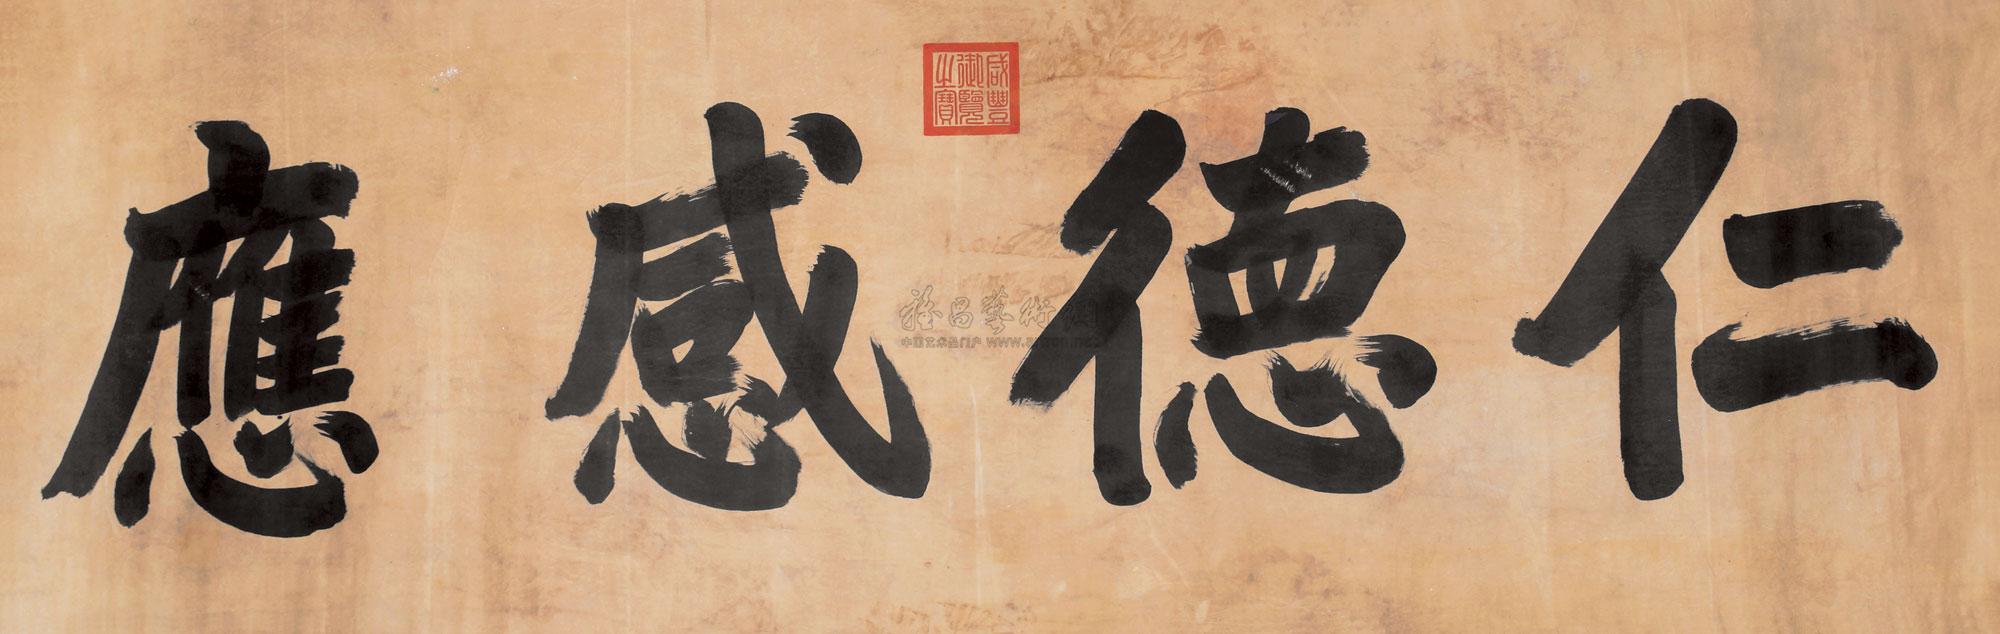 仁德感應
咸豐御覽之寶
雅昌藝術網
中国艺术品门户 www.artron.net